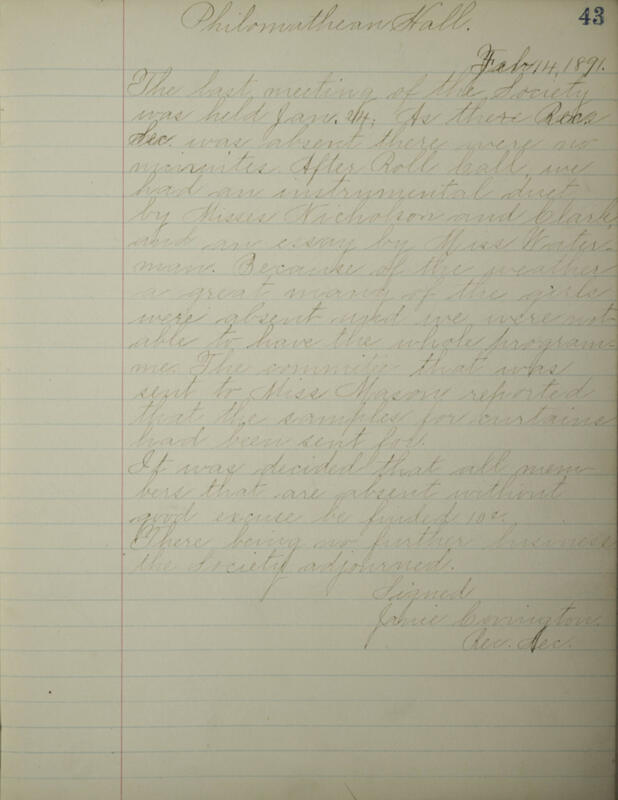 43
Philomathean Hall.
Feb. 14, 1891.
The last meeting of the Society
was held Jan. 24. As there Rec.
Sec. was absent there were no
minuites. After Roll Call, we
had an instrumental duet
by Misses Nicholson and Clark,
and an essay by Miss Water-
man. Because of the weather
a great many of the girls
were absent and we were not
able to have the whole program-
me. The commity that was
sent to Miss Mason reported
that the samples for curtains
had been sent for.
It was decided that all mem-
bers that are absent without
good excuse be finded 10c.
There being no further business
the Society adjourned.
Signed
Janie Covington.
Rec. Sec.